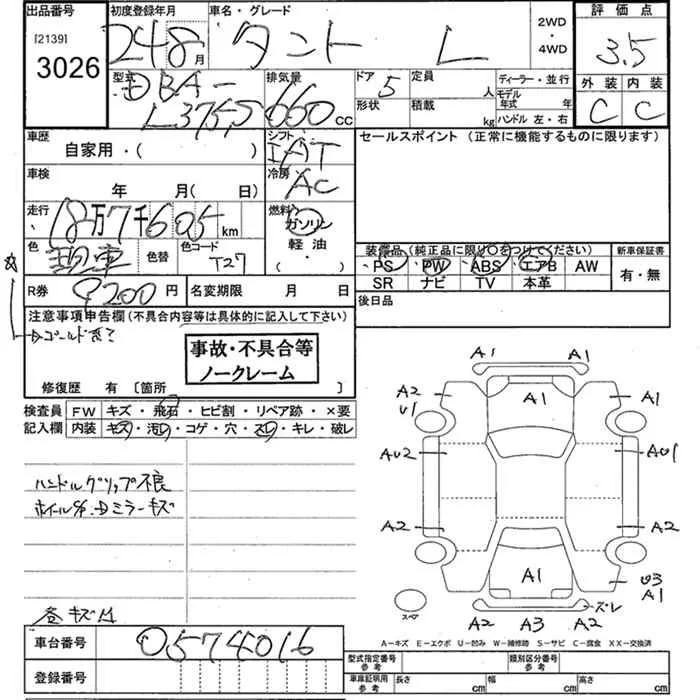 出品番号 初度登録年月 車名・グレード 2WD・4WD 評価点
[2139]
3026 24 8月 タント L 3.5
型式 DBA-L375S 排気量 660cc ドア 5 定員 人 ディーラー・並行 外装 内装
形状 積載 kg モデル年式 年 C C
ハンドル 左・右
車歴 シフト セールスポイント (正常に機能するものに限ります)
自家用・( ) IAT
車検 冷房
年 月(日) AC
走行 18万7千605km 燃料 ガソリン
色 現車 色替 色コード T27 軽油・( )
装備品(純正品に限り○をつけてください) 新車保証書
・PS ・PW ・ABS ・エアB AW 有・無
SR ナビ TV 本革
R券 9200円 名変期限 月 日 後日品
注意事項申告欄(不具合内容等は具体的に記入して下さい)
事故・不具合等
ノークレーム
修復歴 有 〔箇所 〕
検査員 FW キズ・飛石・ヒビ割・リペア跡・×要
記入欄 内装 キズ・汚レ・コゲ・穴・スレ・キレ・破レ
ハンドルグリップ不良
ミラーキズ
A1 A1
A2 A1 A1
U1
AU2 AU1
A2 A2
A1 U3
A1
スペア ズレ
A2 A3 A2
A-キズ E-エクボ U-凹み W-補修跡 S-サビ C-腐食 XX-交換済
車台番号 0574016
登録番号
型式指定番号参考 類別区分番号参考
車庫証明用参考 長さ cm 幅 cm 高さ cm